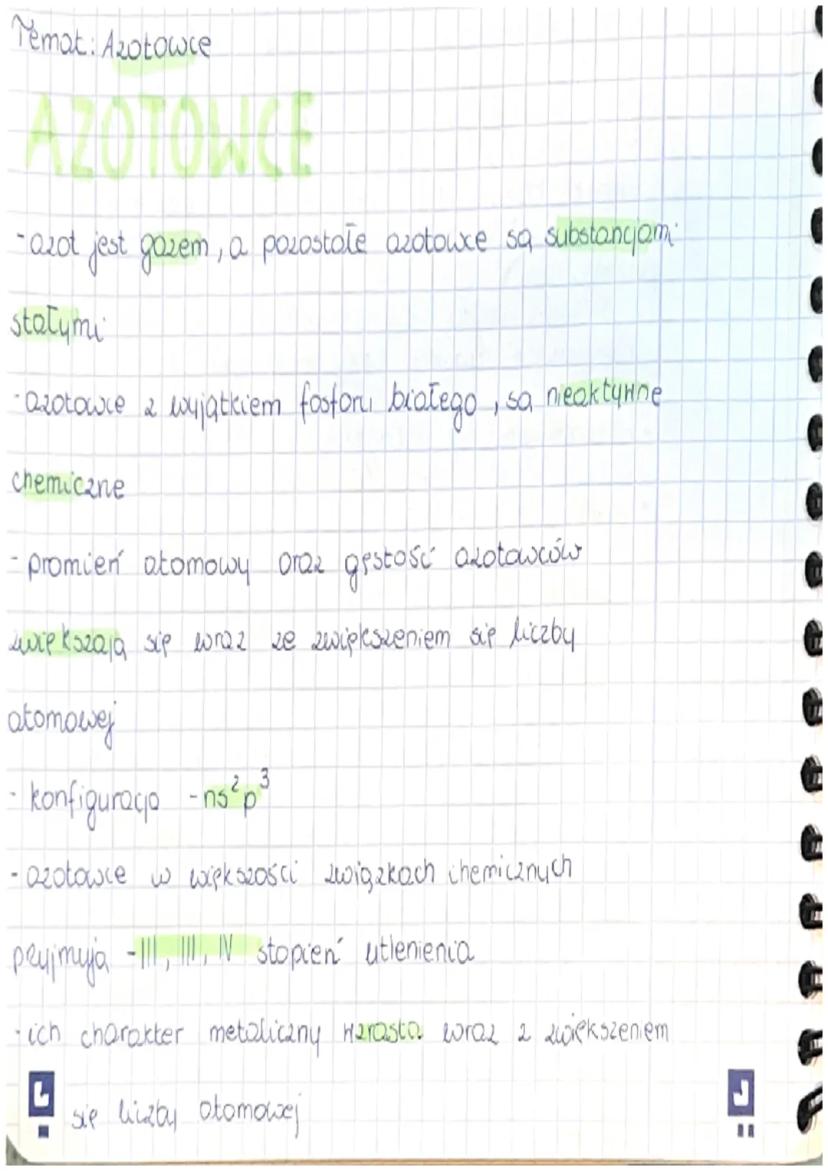 Temat: Azotowce
AZOTOWCE
- azot jest gazem, a pozostałe azotowce są substancjami
stałymi
- azotowce z wyjątkiem fosforu białego, są nieaktywne
chemiczne
- promień atomowy oraz gęstość azotowców
zwiększają się wraz ze zwiększeniem się liczby
atomowej
- konfiguracja - ns²p³
- azotowce w większości związkach chemicznych
pryjmują -III, III, IV stopień utlenienia
- ich charakter metaliczny wzrasta wraz z zwiększeniem
się liczby atomowej